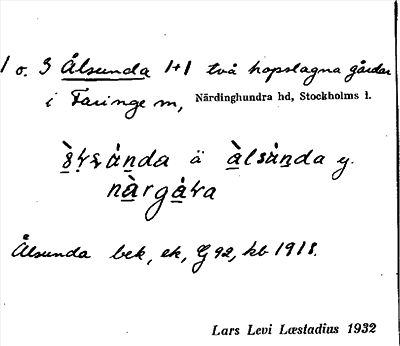 1 o. 3 Ålsunda 1+1 två hopslagna gårdar
i Faringe sn, Närdinghundra hd, Stockholms l.
ä àlsȧnda y.
nàrgȧ́ra
Ålsunda bek, ek, G 92, kb 1918.
Lars Levi Læstadius 1932